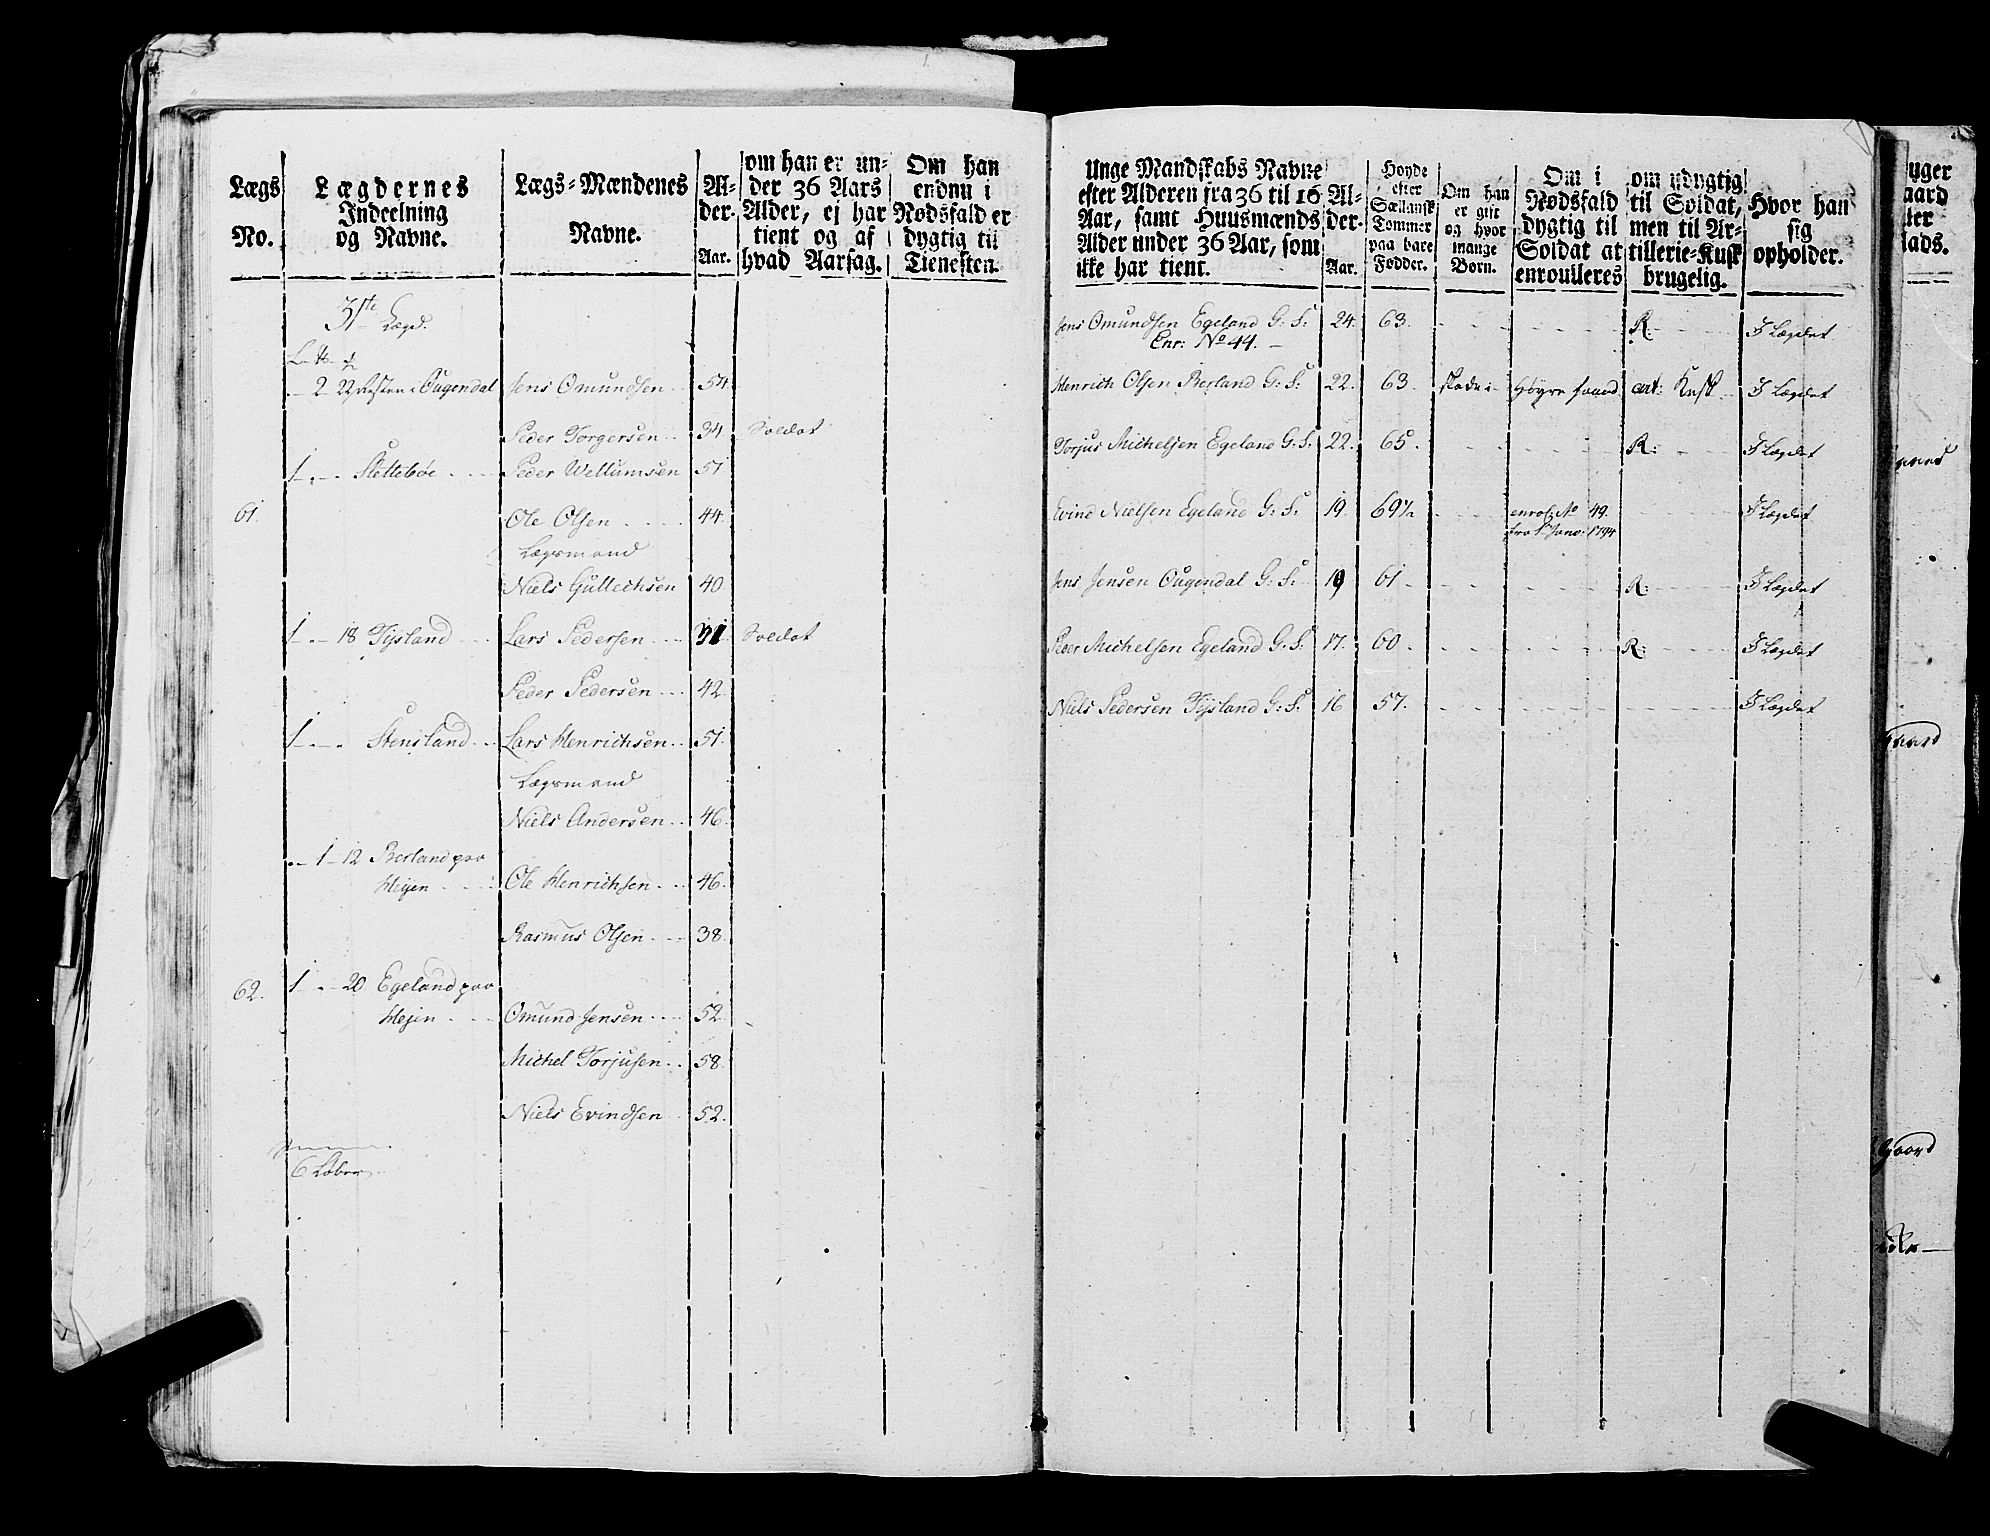 Lægs
No.
Lægdernes
Indeelning
og Navne.
Lægs=Mændenes
Navne.
Al-
der.
Aar.
om han er un-
der 36 Aars
Alder, ej har
tient og af
hvad Aarsag.
Om han
endnu i
Nødsfald er
dygtig til
Tienesten.
31te Lægd.
2 Ougendal Jens Omundsen 54
Peder Torgersen 34 Soldat
1 Slettebøe Peder Wellumsen 51
61. Ole Olsen 44
Lægsmand
Niels Gullechsen 40
1 18 Tysland Lars Pedersen 31 Soldat
Peder Pedersen 42
1 Stensland Lars Henrichsen 51
Lægsmand
Niels Andersen 46
1 12 Berland paa
Heyen Ole Henrichsen 46
Rasmus Olsen 38
62. 1 20 Egeland paa
Hejen Omund Jensen 52
Michel Torjusen 58
Niels Evindsen 52
6 Løber
Unge Mandskabs Navne
efter Alderen fra 36 til 16
Aar, samt Huusmænds
Alder under 36 Aar, som
ikke har tient.
Al-
der.
Aar.
Høyde
efter
Sællansk
Tommer
paa bare
Fødder.
Om han
er gift
og hvor
mange
Børn.
Om i
Nødsfald
dygtig til
Soldat at
enroulleres
om udygtig
til Soldat,
men til Ar-
tillerie=Kusk
brugelig.
Hvor han
sig
opholder.
Jens Omundsen Egeland G: S: 24. 63. R: I Lægdet
Enr: No 44.
Henrich Olsen Berland G: S: 22. 63. skade i høyre haand art: Kusk I Lægdet
Torjus Michelsen Egeland G: S: 22. 65. R: I Lægdet
Evind Nielsen Egeland G: S: 19. 69½ enrol: No 49. I Lægdet
fra 1 Janv: 1794
Jens Jensen Ougendal G: S: 19 61 R: I Lægdet
Peder Michelsen Egeland G: S: 17. 60. R: I Lægdet
Niels Pedersen Tysland G: S: 16 57. I Lægdet
uger
aard
ller
lads.
Gaard